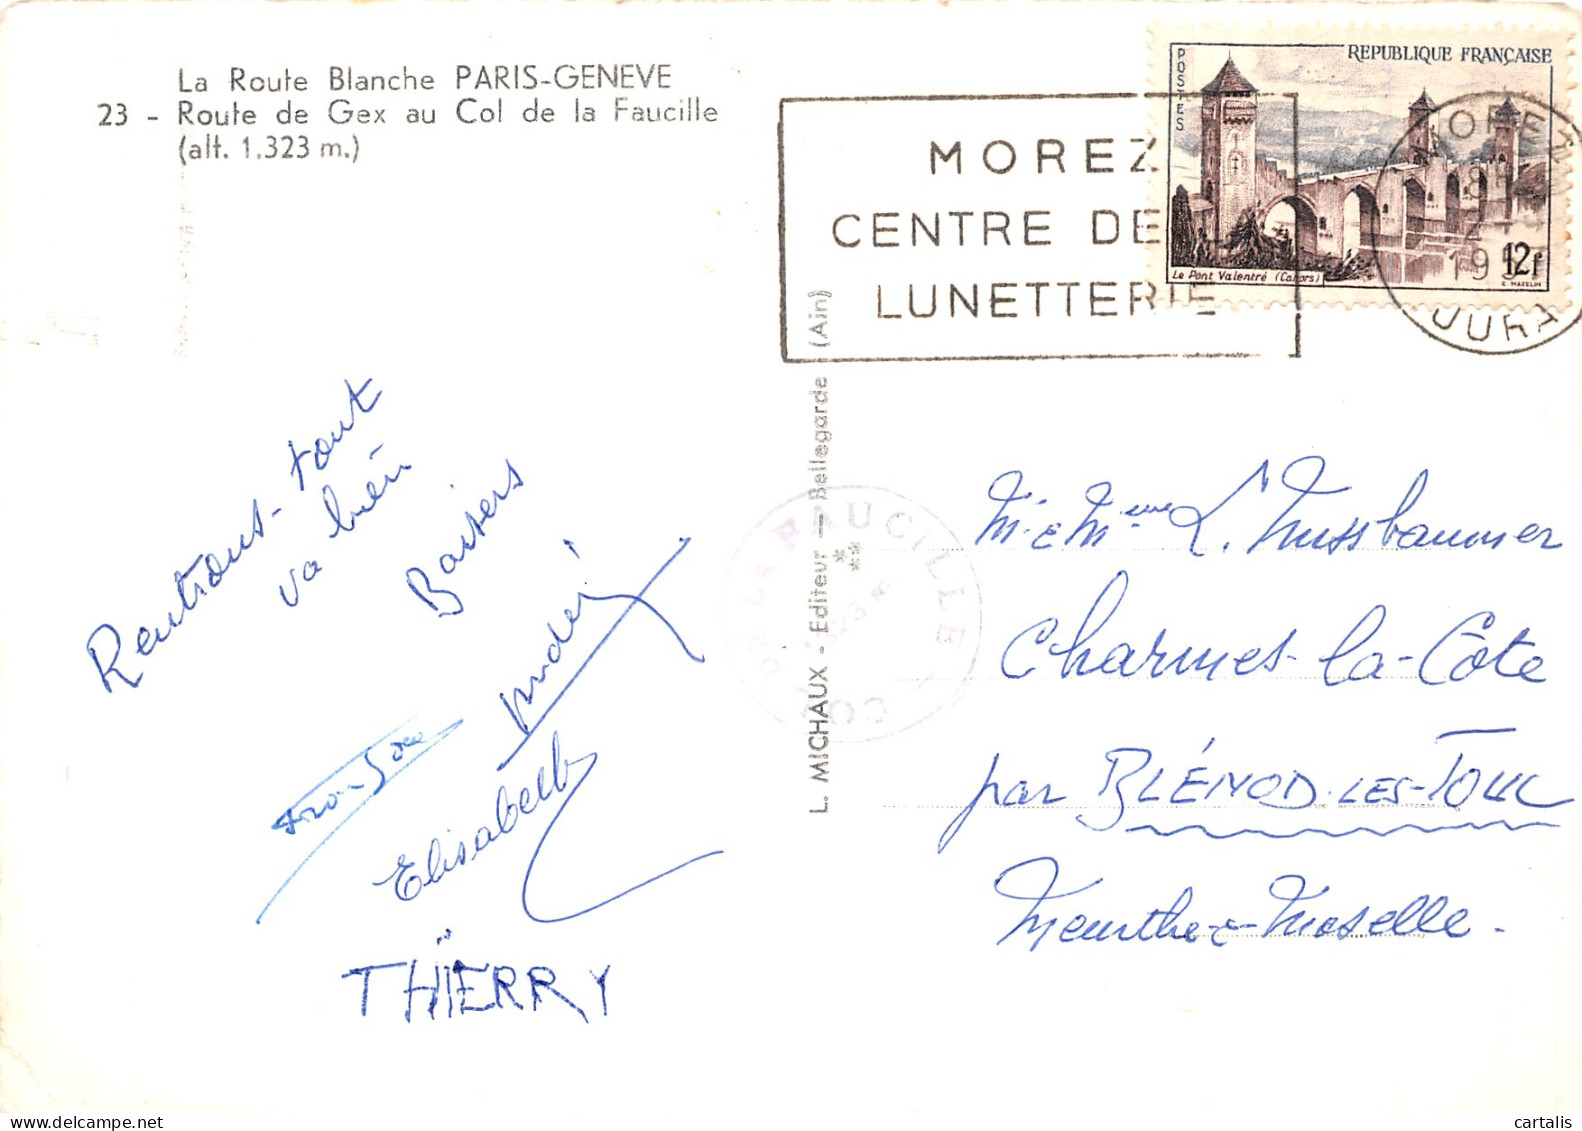 La Route Blanche PARIS-GENEVE
23 - Route de Gex au Col de la Faucille
(alt. 1.323 m.)
MOREZ
CENTRE DE
LUNETTERIE
POSTES
REPUBLIQUE FRANÇAISE
Le Pont Valentré (Cahors)
12f
MOREZ
JURA
L. MICHAUX - Editeur - Bellegarde (Ain)
COL DE LA FAUCILLE
Rentrons - tout
va bien
Baisers
Elisabeth
THIERRY
M. & Mme L. Nussbaumer
Charmes-la-Côte
par BLÉNOD-LES-TOUL
Meurthe-&-Moselle.
cartalis